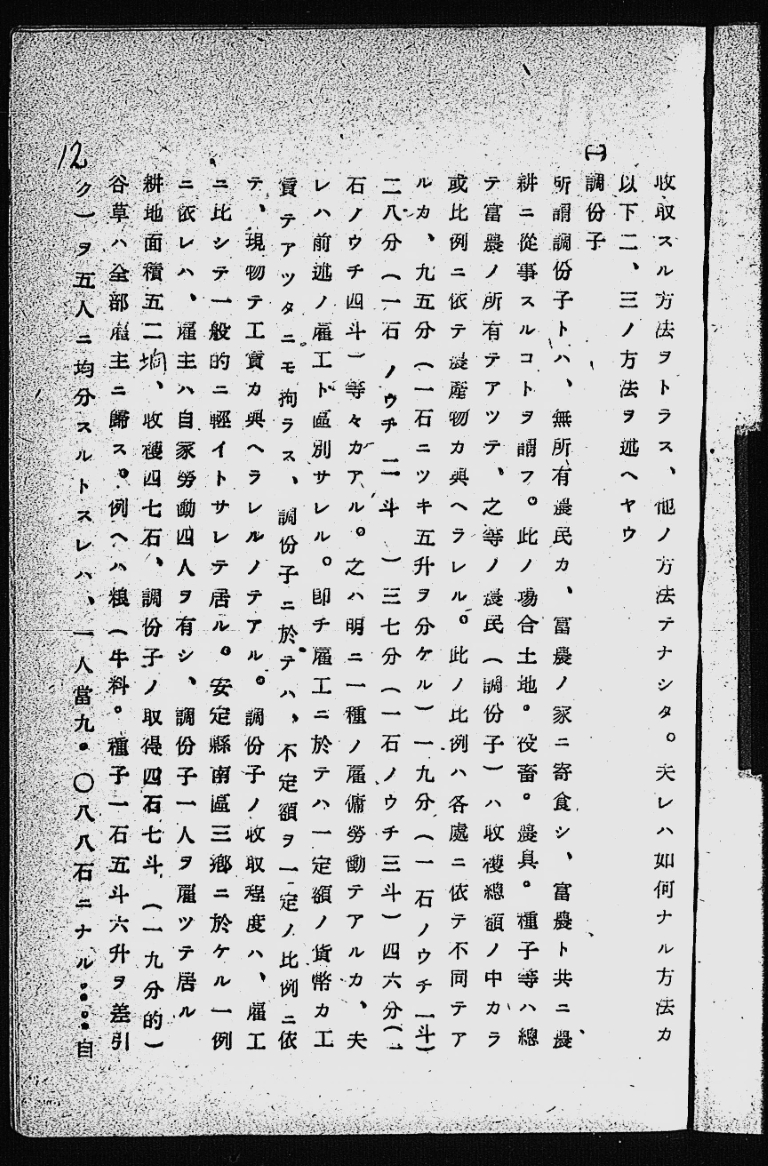 收取スル方法ヲトラス、他ノ方法テナシタ。夫レハ如何ナル方法カ
以下二、三ノ方法ヲ述ヘヤウ
(一)調份子
所謂調份子トハ、無所有農民カ、富農ノ家ニ寄食シ、富農ト共ニ農
耕ニ從事スルコトヲ謂フ。此ノ場合土地。役畜。農具。種子等ハ總
テ富農ノ所有テアツテ、之等ノ農民(調份子)ハ收穫總額ノ中カラ
或比例ニ依テ農產物カ與ヘラレル。此ノ比例ハ各處ニ依テ不同テア
ルカ、九五分(一石ニツキ五升ヲ分ケル)一九分(一石ノウチ一斗)
二八分(一石ノウチ二斗)三七分(一石ノウチ三斗)四六分(一
石ノウチ四斗)等々カアル。之ハ明ニ一種ノ雇傭勞働テアルカ、夫
レハ前述ノ雇工ト區別サレル。卽チ雇工ニ於テハ一定額ノ貨幣カ工
賃テアツタニモ拘ラス、調份子ニ於テハ、不定額ヲ一定ノ比例ニ依
テ、現物テ工賃カ與ヘラレルノテアル。調份子ノ收取程度ハ、雇工
ニ比シテ一般的ニ輕イトサレテ居ル。安定縣南區三鄕ニ於ケル一例
ニ依レハ、雇主ハ自家勞働四人ヲ有シ、調份子一人ヲ雇ツテ居ル
耕地面積五二垧、收穫四七石、調份子ノ取得四石七斗、(一九分的)
谷草ハ全部雇主ニ歸ス。例ヘハ粮(牛料。種子一石五斗六升ヲ差引
ク)ヲ五人ニ均分スルトスレハ、一人當九。〇八八石ニナル。。。自
12